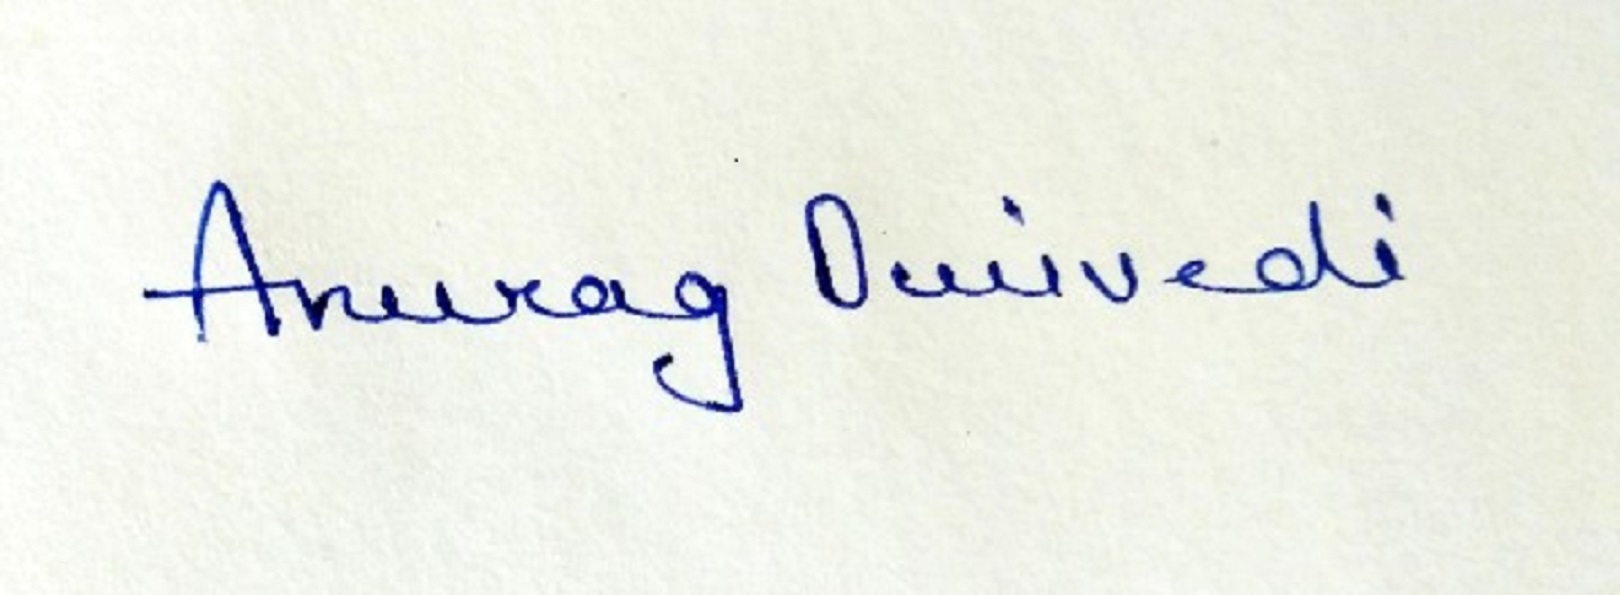 Anurag Dwivedi